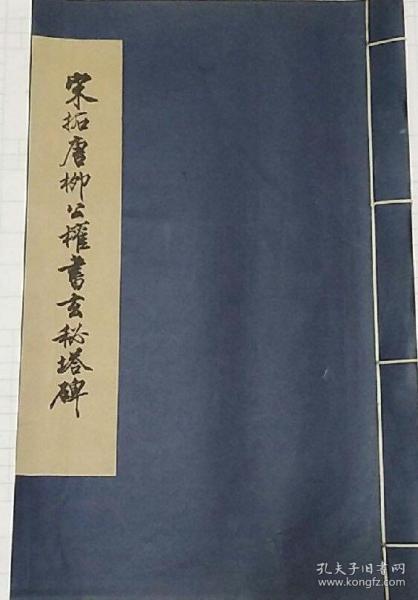 宋拓唐柳公權書玄秘塔碑
孔夫子旧书网
www.kongfz.com